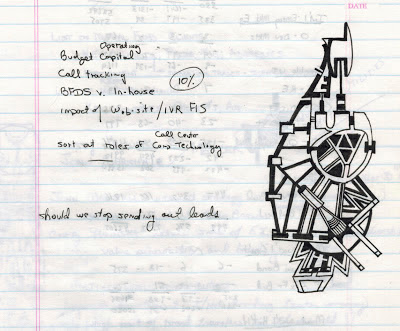 DATE
Operating
Budget Capital
Call tracking
10%
BFDS v. In-house
impact of Web-site/IVR FIS
Call Center
sort out roles of Comp Technology
should we stop sending out leads